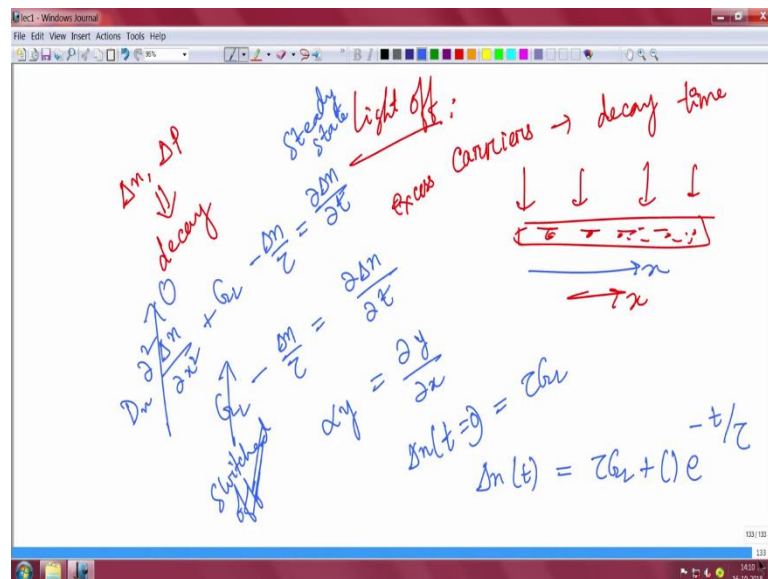 lec1 - Windows Journal
File Edit View Insert Actions Tools Help
96%
steady state
Light off:
excess carriers → decay time
Δn, ΔP
⇓
decay
Dₙ ∂²Δn/∂x² → 0 + G_L - Δn/τ = ∂Δn/∂t
x
x
G_L - Δn/τ = ∂Δn/∂t
switched off
αy = ∂y/∂x
Δn(t=0) = τG_L
Δn(t) = τG_L + () e^(-t/τ)
133/133
133
14:10